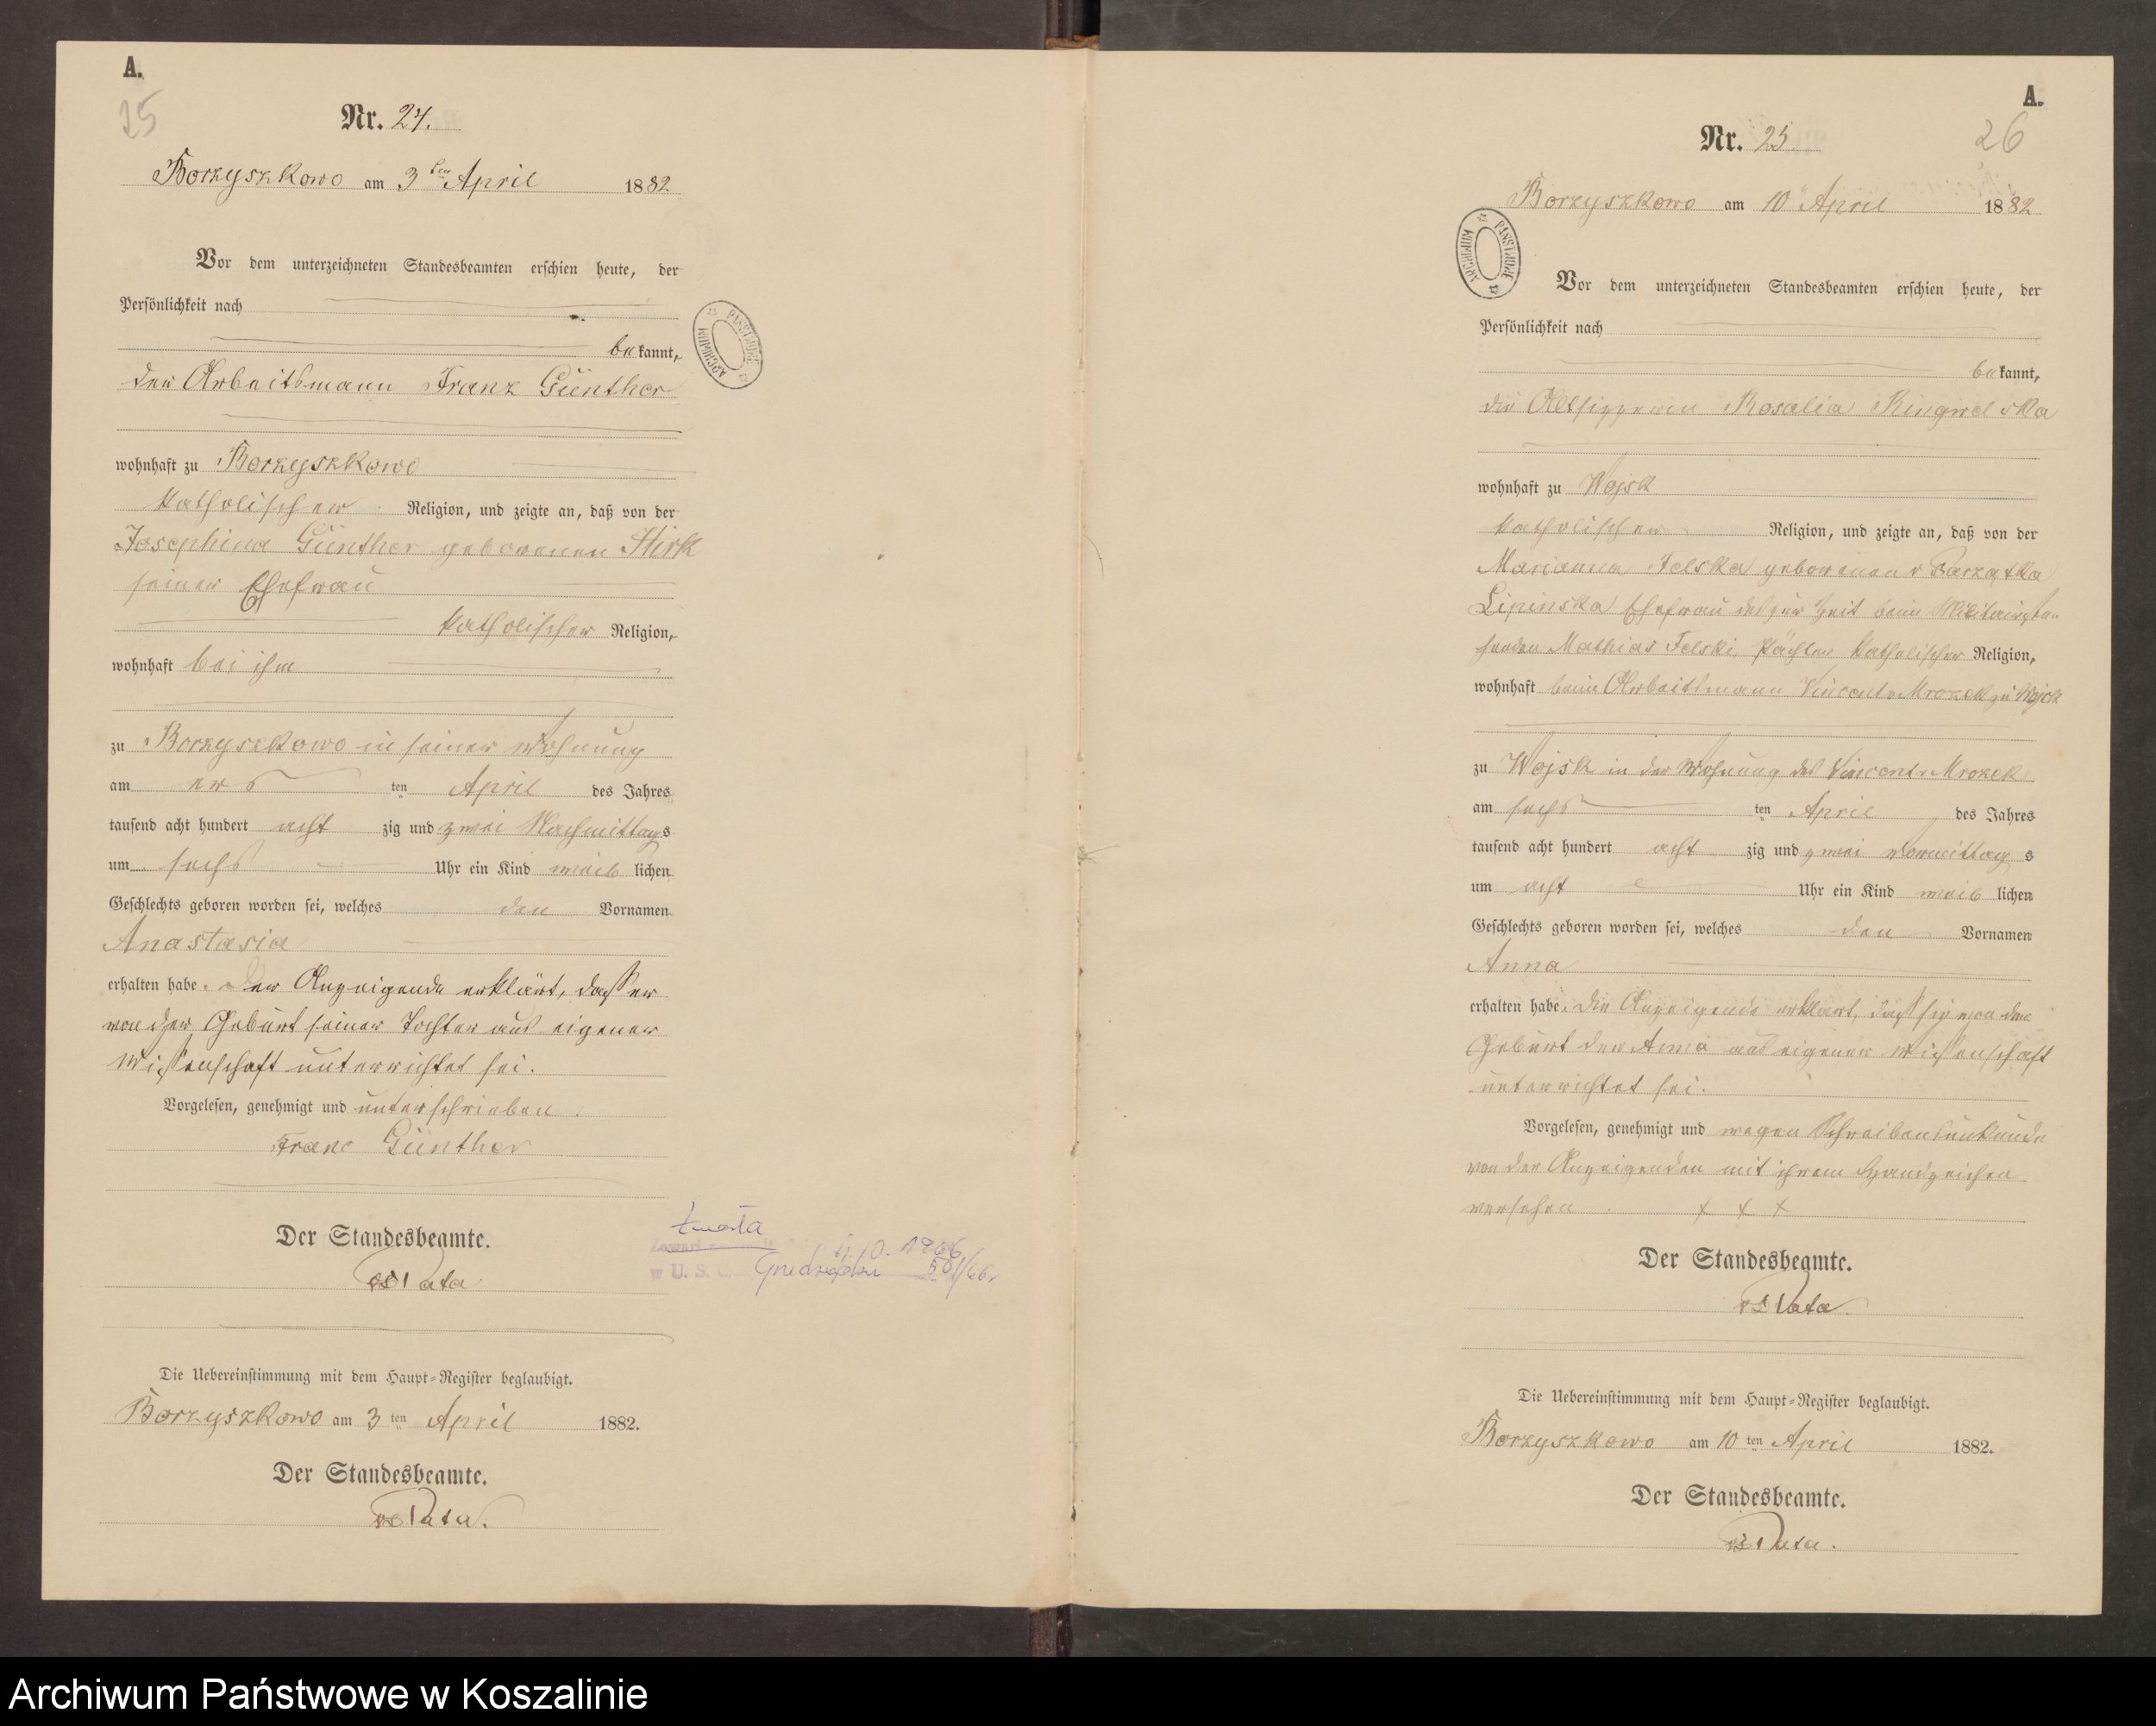 A.
25
Nr. 24.
Borzyszkowo am 3ten April 1882
Vor dem unterzeichneten Standesbeamten erschien heute, der
Persönlichkeit nach
bekannt,
der Arbeitsmann Franz Günther
wohnhaft zu Borzyszkowo
katholischer Religion, und zeigte an, daß von der
Josephina Günther geborenen Hirk
seiner Ehefrau
katholischer Religion,
wohnhaft bei ihm
zu Borzyszkowo in seiner Wohnung
am ers ten April des Jahres
tausend acht hundert acht zig und zwei Nachmittags
um sechs Uhr ein Kind weib lichen
Geschlechts geboren worden sei, welches den Vornamen
Anastasia
erhalten habe. Der Anzeigende erklärt, dass er
von der Geburt seiner Tochter aus eigener
Wissenschaft unterrichtet sei.
Vorgelesen, genehmigt und unterschrieben.
Franc Günther
Der Standesbeamte.
Die Uebereinstimmung mit dem Haupt-Register beglaubigt.
Borzyszkowo am 3 ten April 1882.
Der Standesbeamte.
ARCHIWUM PAŃSTWOWE
zmarła
w U. S. C. 501/66
A.
26
Nr. 25.
Borzyszkowo am 10 April 1882
ARCHIWUM PAŃSTWOWE
Vor dem unterzeichneten Standesbeamten erschien heute, der
Persönlichkeit nach
bekannt,
die Altsitzerin Rosalia Ringwelska
wohnhaft zu Wojsk
katholischer Religion, und zeigte an, daß von der
Marianna Felska geborenen
Lipinska Ehefrau des zur Zeit beim Militair ste-
henden Mathias Felski, Pächter katholischer Religion,
wohnhaft beim Arbeitsmann Vincent Mrozek zu Wojsk
zu Wojsk in der Wohnung des Vincent Mrozek
am sechs ten April des Jahres
tausend acht hundert acht zig und zwei Vormittag s
um acht Uhr ein Kind weib lichen
Geschlechts geboren worden sei, welches den Vornamen
Anna
erhalten habe. Die Anzeigende erklärt, dass sie von der
Geburt der Anna aus eigener Wissenschaft
unterrichtet sei.
Vorgelesen, genehmigt und wegen Schreibensunkunde
von der Anzeigenden mit ihrem Handzeichen
versehen. x x x
Der Standesbeamte.
Die Uebereinstimmung mit dem Haupt-Register beglaubigt.
Borzyszkowo am 10 ten April 1882.
Der Standesbeamte.
Archiwum Państwowe w Koszalinie